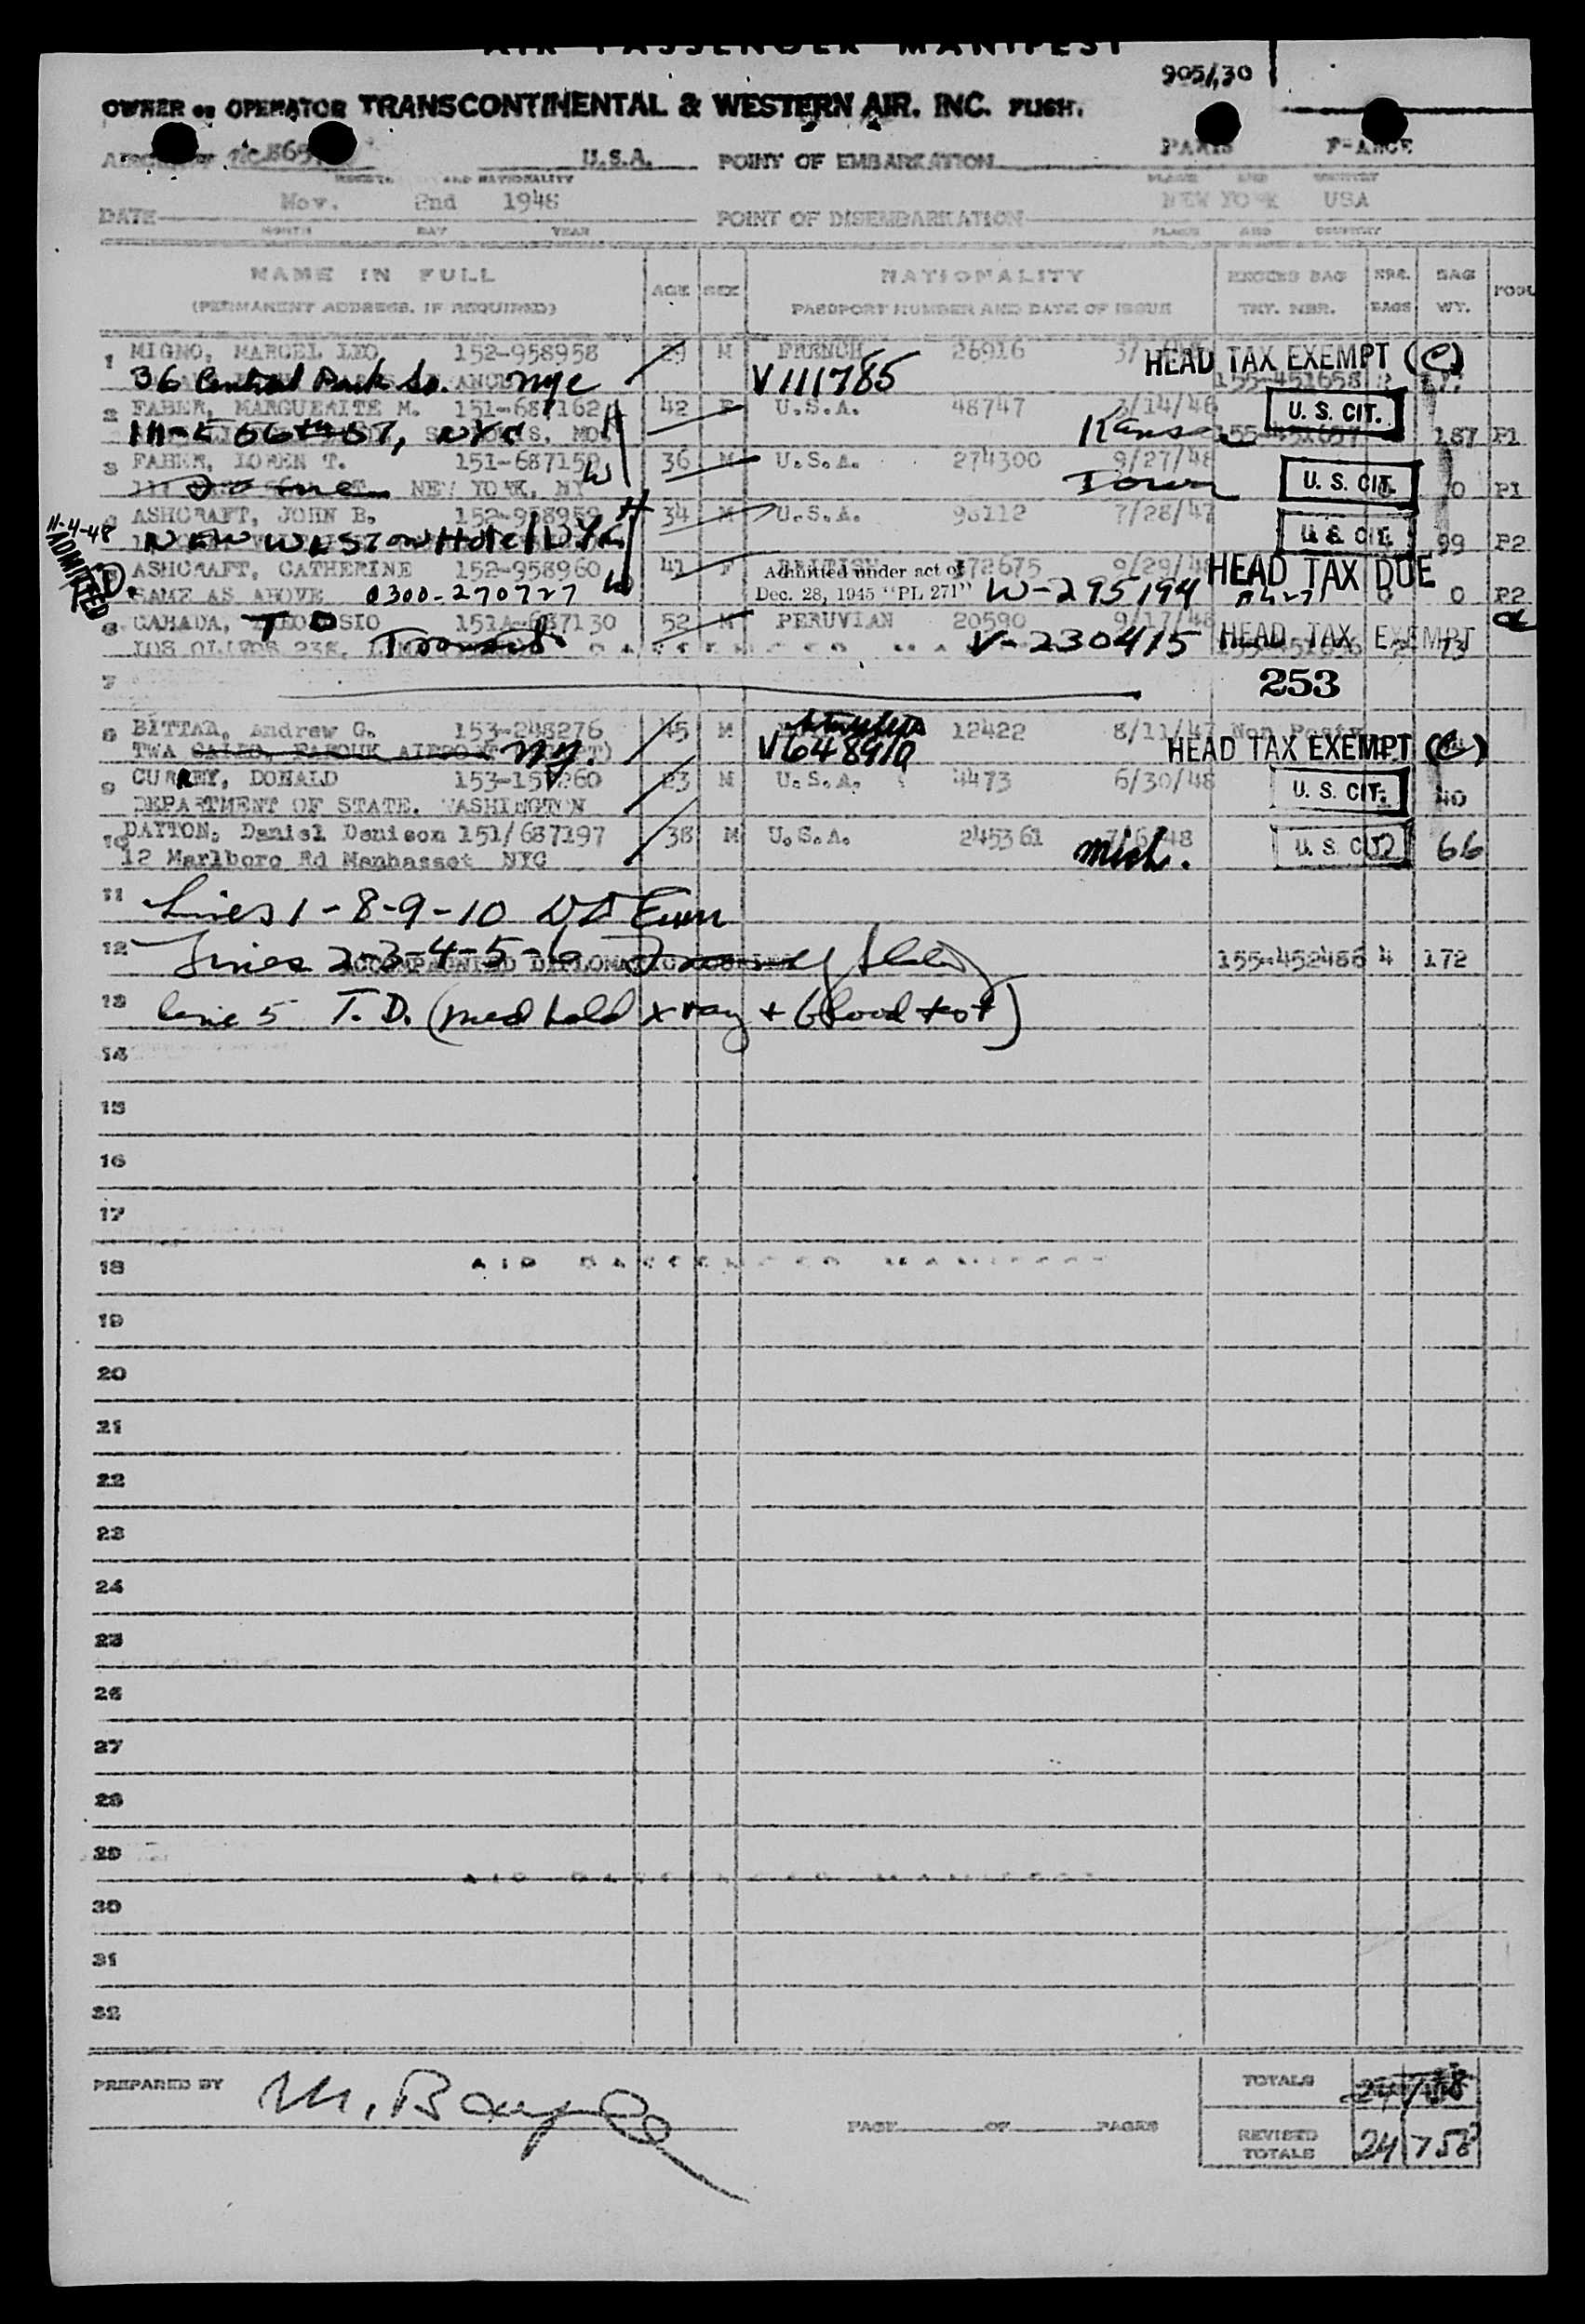 AIR PASSENGER MANIFEST
905/30
OWNER OR OPERATOR TRANSCONTINENTAL & WESTERN AIR. INC. FLIGH.
U.S.A. POINT OF EMBARKATION PARIS F-ANCE
AND NATIONALITY PLACE AND COUNTRY
DATE Nov. 2nd 1948 POINT OF DISEMBARKATION NEW YORK USA
MONTH DAY YEAR PLACE AND COUNTRY
NAME IN FULL AGE SEX NATIONALITY EXCESS BAG NBR. BAG
(PERMANENT ADDRESS. IF REQUIRED) PASSPORT NUMBER AND DATE OF ISSUE TKT. NBR. BAGS WT.
1 MIGNO, MARCEL LEO 152-958958 29 M FRENCH 26916 HEAD TAX EXEMPT (C)
36 Central Park So. NYC V111785 155-451658
2 FABER, MARGUERITE M. 151-687162 H 42 F U.S.A. 48747 3/14/46 U. S. CIT.
NYC Kansas 187 P1
3 FABER, LOREN T. 151-687159 W 36 M U.S.A. 274300 9/27/48 U. S. CIT.
NEW YORK, NY Iowa 0 P1
11-4-48 ADMITTED
4 ASHCRAFT, JOHN B. 152-958959 H 34 M U.S.A. 96112 7/28/47 U. S. CIT.
NEW WESTON Hotel N.Y.C. 99 P2
5 ASHCRAFT, CATHERINE 152-958960 W 41 F BRITISH 372675 9/29/48 HEAD TAX DUE
Admitted under act of
Dec. 28, 1945 "PL 271"
SAME AS ABOVE 0300-270727 W-295194 0 P2
6 CAHADA, TEODOSIO 151A-687130 52 M PERUVIAN 20590 9/17/48
LOS OLIVOS 238, Transit V-230415 HEAD TAX EXEMPT 73
7 253
8 BITTAR, Andrew G. 153-248276 45 M 12422 8/11/47
TWA CAIRO, FAROUK AIRPORT NY. V648910 HEAD TAX EXEMPT (C)
9 CURREY, DONALD 153-157260 23 M U.S.A. 4473 6/30/48 U. S. CIT.
DEPARTMENT OF STATE. WASHINGTON 40
10 DAYTON, Daniel Denison 151/687197 38 M U.S.A. 245361 U. S. CIT. 2 66
12 Marlboro Rd Manhasset NYC Mich.
11 Lines 1-8-9-10
12 Lines 2-3-4-5-6 155-452486 4 172
ACCOMPAGNIED DIPLOMATIC
13 Line 5 T.D. (med hold x ray + blood test)
14
15
16
17
18
AIR PASSENGER MANIFEST
19
20
21
22
23
24
25
26
27
28
29
AIR PASSENGER MANIFEST
30
31
32
PREPARED BY TOTALS 24
PAGE OF PAGES REVISED
TOTALS 24 758